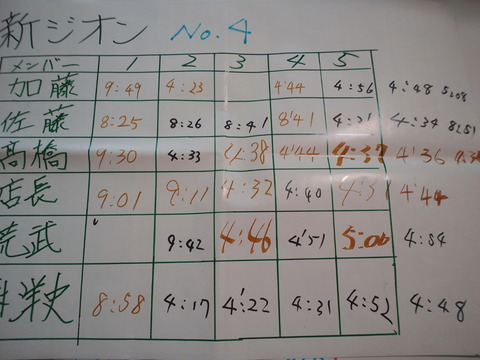 新ジオン No.4
メンバー 1 2 3 4 5
加藤 9:49 4:23 4'44 4:56 4:48
佐藤 8:25 8:26 8:41 8'41 4:34
高橋 9:30 4:33 4:38 4'44 4:37 4'36
店長 9:01 9:11 4:32 4:40 4:31 4'44
荒武 9:42 4:46 4'51 5:00 4:54
洋史 8:58 4:17 4'22 4:31 4:52 4:48